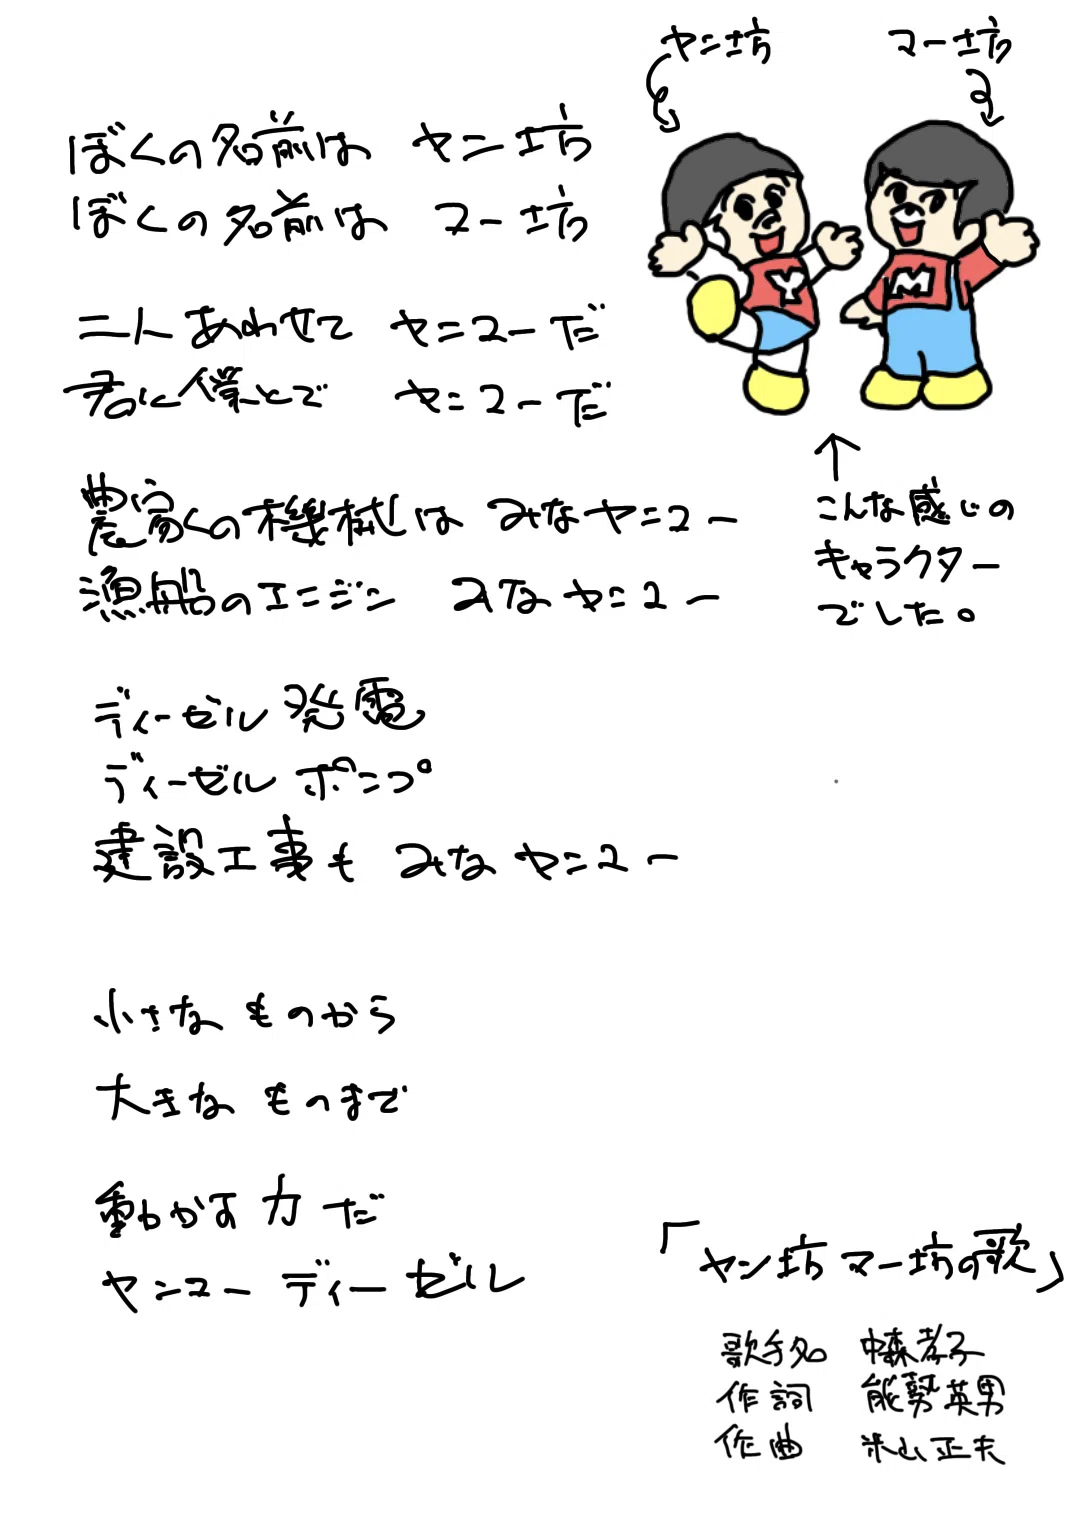 ヤン坊 マー坊
ぼくの名前は ヤン坊
ぼくの名前は マー坊
二人あわせて ヤンマーだ
君と僕とで ヤンマーだ
農家の機械は みなヤンマー
漁船のエンジン みなヤンマー
ディーゼル発電
ディーゼルポンプ
建設工事も みなヤンマー
小さな ものから
大きな ものまで
動かす力だ
ヤンマーディーゼル
Y M
こんな感じの
キャラクター
でした。
「ヤン坊マー坊の歌」
歌手名 中森孝子
作詞 能勢英男
作曲 米山正夫